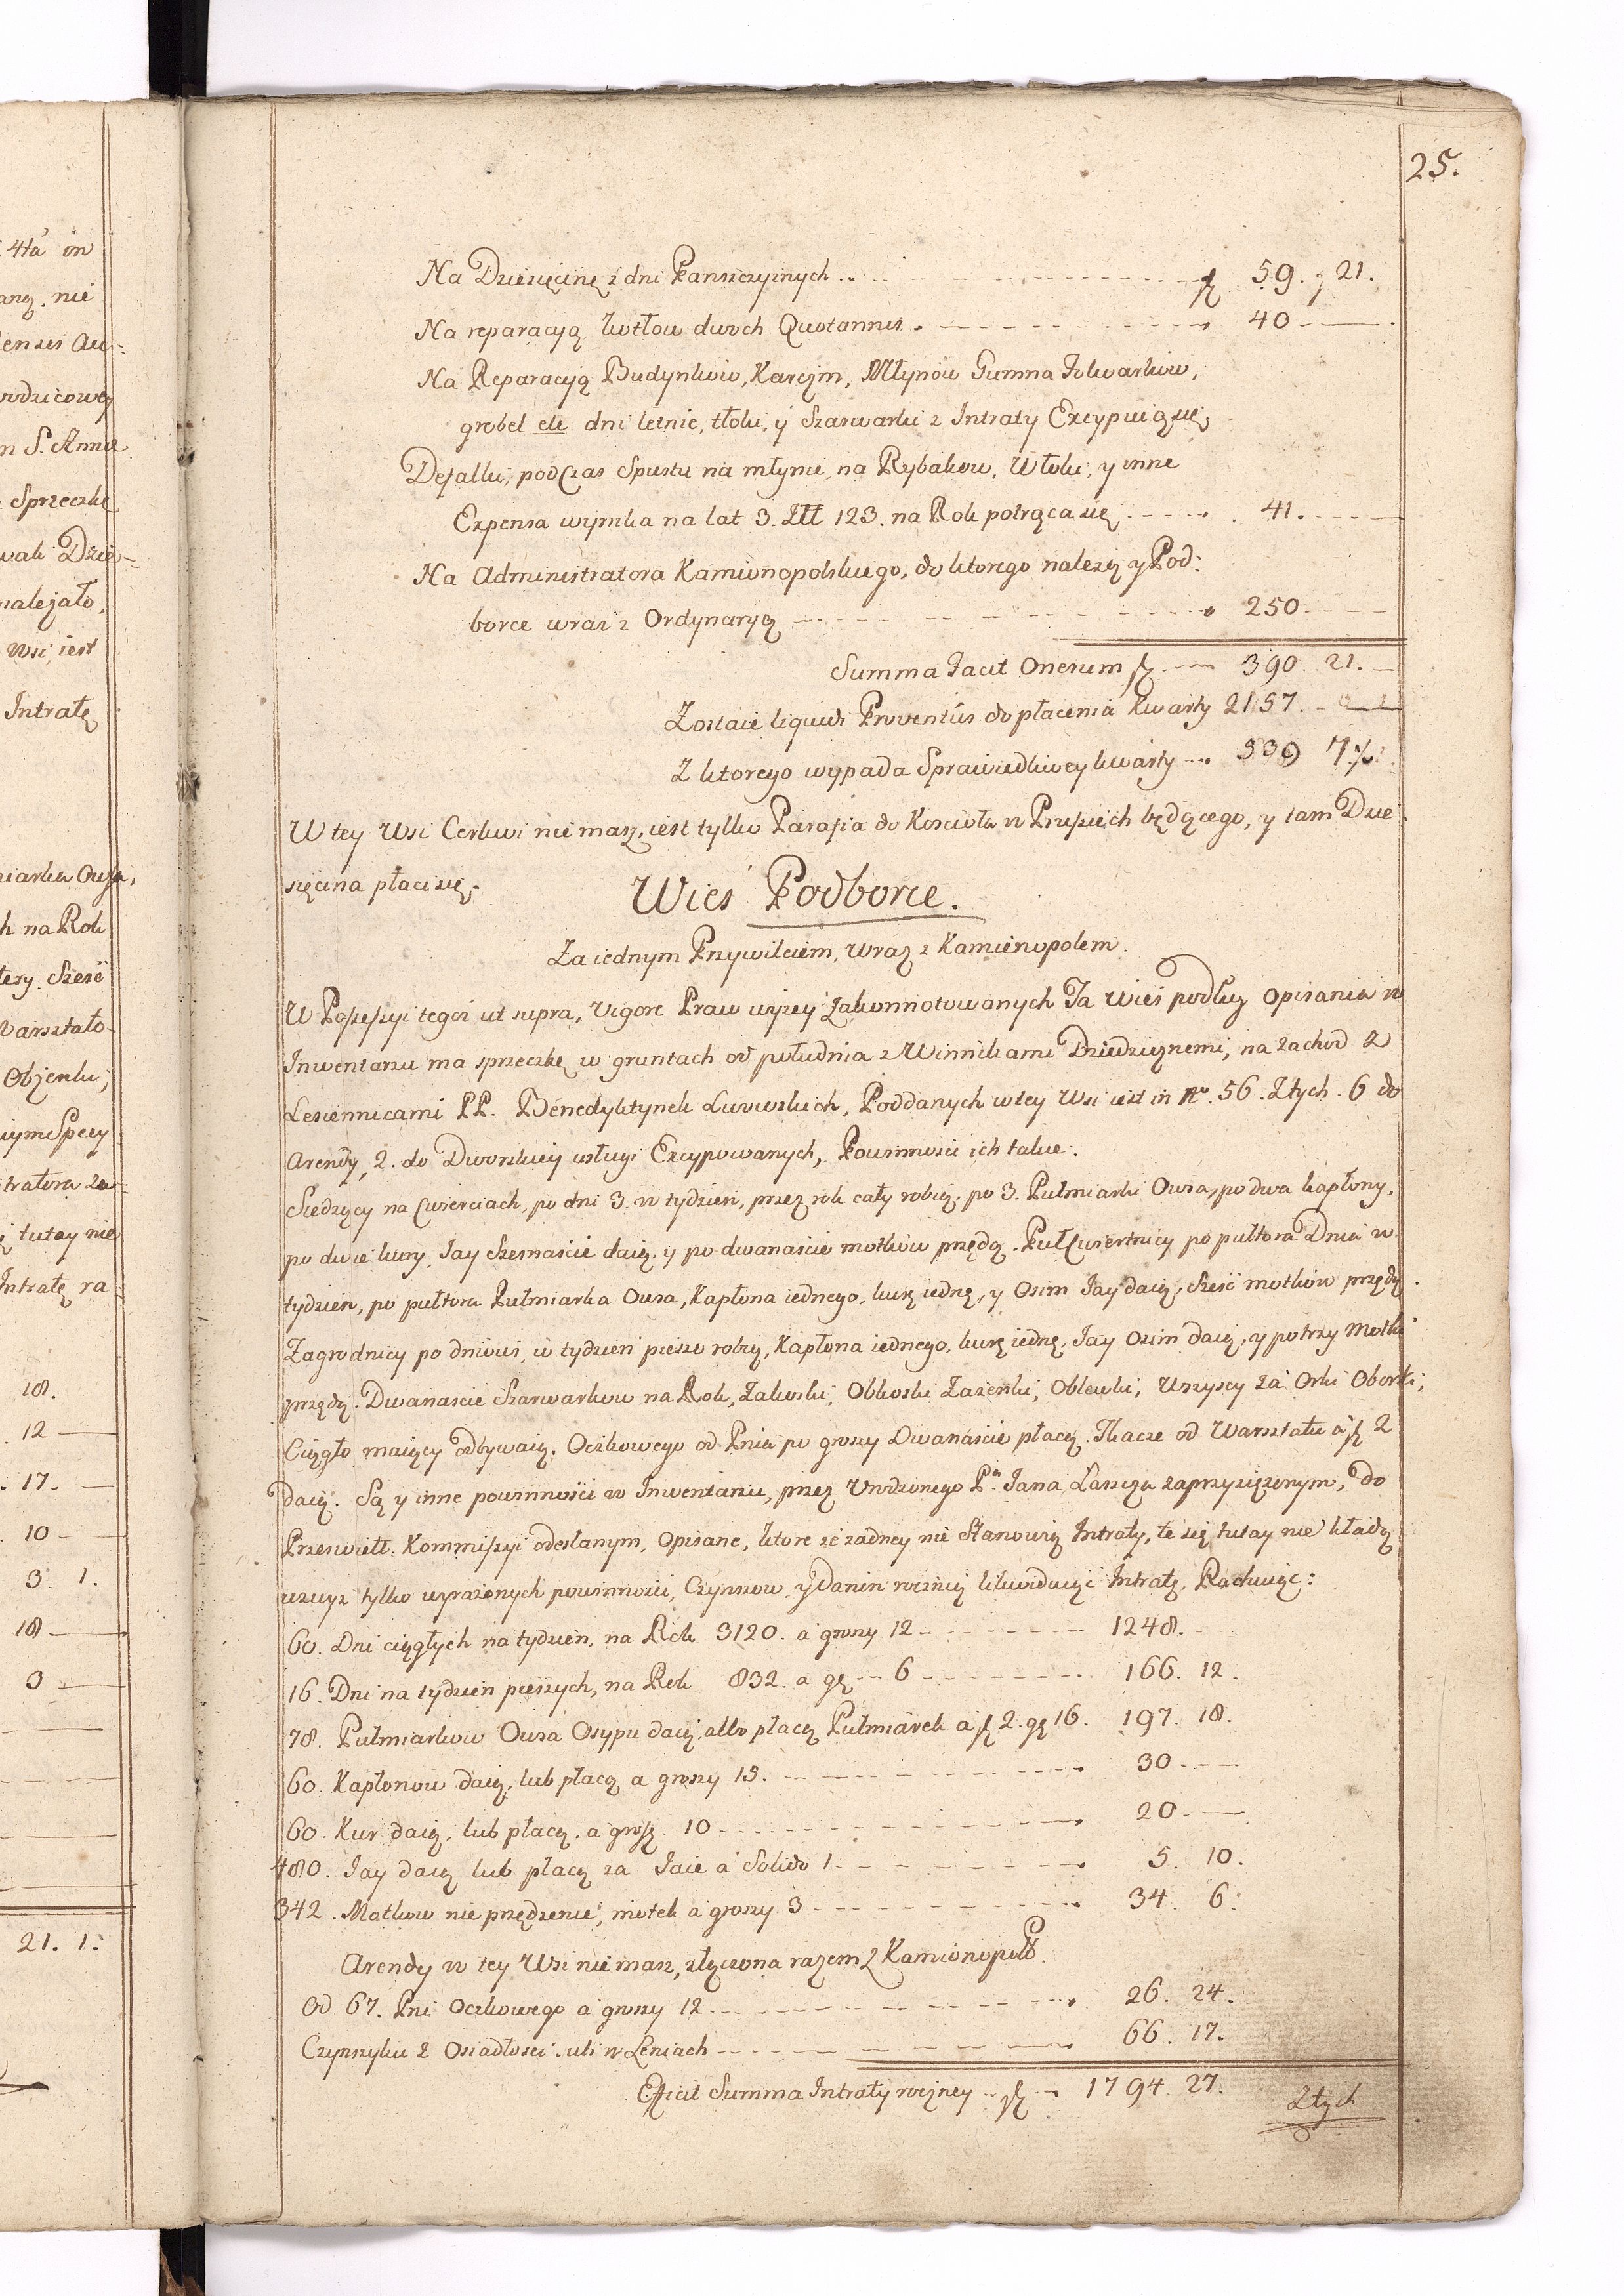 25.
Na Dziesięcinę z dni Panszczyznych .. fl 59. g 21.
Na reparacyą kotłow dwoch Quotannis . 40
Na Reparacyą Budynkow, Karczm, Młynow Gumna Folwarkow,
grobel etc dni letnie, tłoki, y Szarwarki z Intraty Excypuią się,
Defalki, podczas Spustu na młynie, na Rybakow, Włoki, y inne
Expensa wynika na lat 3. Złł 123. na Rok potrąca się 41.
Na Administratora Kamionopolskiego, do ktorego należy y Pod:
borce wraz z Ordynaryą 250
Summa Facit Onerum fl 390. 21.
Zostaie liquidi Proventûs do płacenia Kwarty 2157.
Z ktorego wypada Sprawiedliwey kwarty 539 7½
W tey Wsi Cerkwi nie masz, iest tylko Parafia do Kościoła w Prusiech będącego, y tam Dzie
sięcina płaci się.
Wieś Podborce.
Za iednym Przywileiem, wraz z Kamienopolem.
W Possessyi tegoż ut supra, Vigore Praw wyżey zakonnotowanych Ta Wieś podług Opisania w
Inwentarzu ma sprzeczkę w gruntach od południa z Winnikami Dziedzicznemi, na zachod z
Lesiennicami PP. Benedyktynek Lwowskich, Poddanych w tey Wsi iest in Nro. 56. Z tych . 6 do
Arendy, 2. do Dworskiey usługi Excypowanych, Powinności ich takie.
Siedzący na Cwierciach, po dni 3. w tydzień, przez rok cały robią, po 3. Pułmiarki Owsa, po dwa kapłony,
po dwie kury, Jay szesnaście daią, y po dwanaście motków przędą. Puł Cwiertnicy po pułtora Dnia w
tydzień, po pułtora Pułmiarka Owsa, Kapłona iednego, kurę iednę, y Osim Jay daią, sześć motków przędą.
Zagrodnicy po dniowi, w tydzień pieszo robią, Kapłona iednego, kurę iednę, Jay osim daią, y po trzy Motki
przędą. Dwanaście Szarwarkow na Rok, Zakoski, Obkoski Zażenki, Oblewki, Wszyscy za Orki Oborki,
Cięgło maiący odbywaią. Oczkowego od Pnia po groszy Dwanaście płacą. Tkacze od Warsztatu à fl 2
daią. Są y inne powinności w Inwentarzu, przez Urodzonego Pa. Jana Laszcza zaprzysiężonym, do
Przeswiett. Kommissyi odesłanym, Opisane, ktore że żadney nie Stanowią Intraty, te się tutay nie kładą
rzecz tylko wyrażonych powinności, Czynszow y Danin roczną likwiduiąc Intratę, Rachuiąc:
60. Dni cięgłych na tydzień, na Rok 3120. à groszy 12 1248.
16. Dni na tydzień pieszych, na Rok 832. a gę 6 166. 12.
78. Pułmiarkow Owsa Osypu daią, albo płacą Pułmiarek à fl 2. gę 16. 197. 18.
60. Kapłonow daią, lub płacą a groszy 15. 30.
60. Kur daią, lub płacą. a grosz. 10 20.
480. Jay daią lub płacą za Jaie à Solido 1. 5. 10.
342. Motkow nie przędzenie, motek à groszy 3 34. 6.
Arendy w tey Wsi nie masz, złączona razem z Kamionopol.
Od 67. Pni Oczkowego à groszy 12 26. 24.
Czynszyku z Osiadłości uti w Leniach 66. 17.
Efficit Summa Intraty roczney fl 1794. 27.
Z tych
4ta in
Sprzeczkę
Wsi, iest
Intratę
na Rok
18.
12
17.
10
3. 1.
18
3
21. 1.